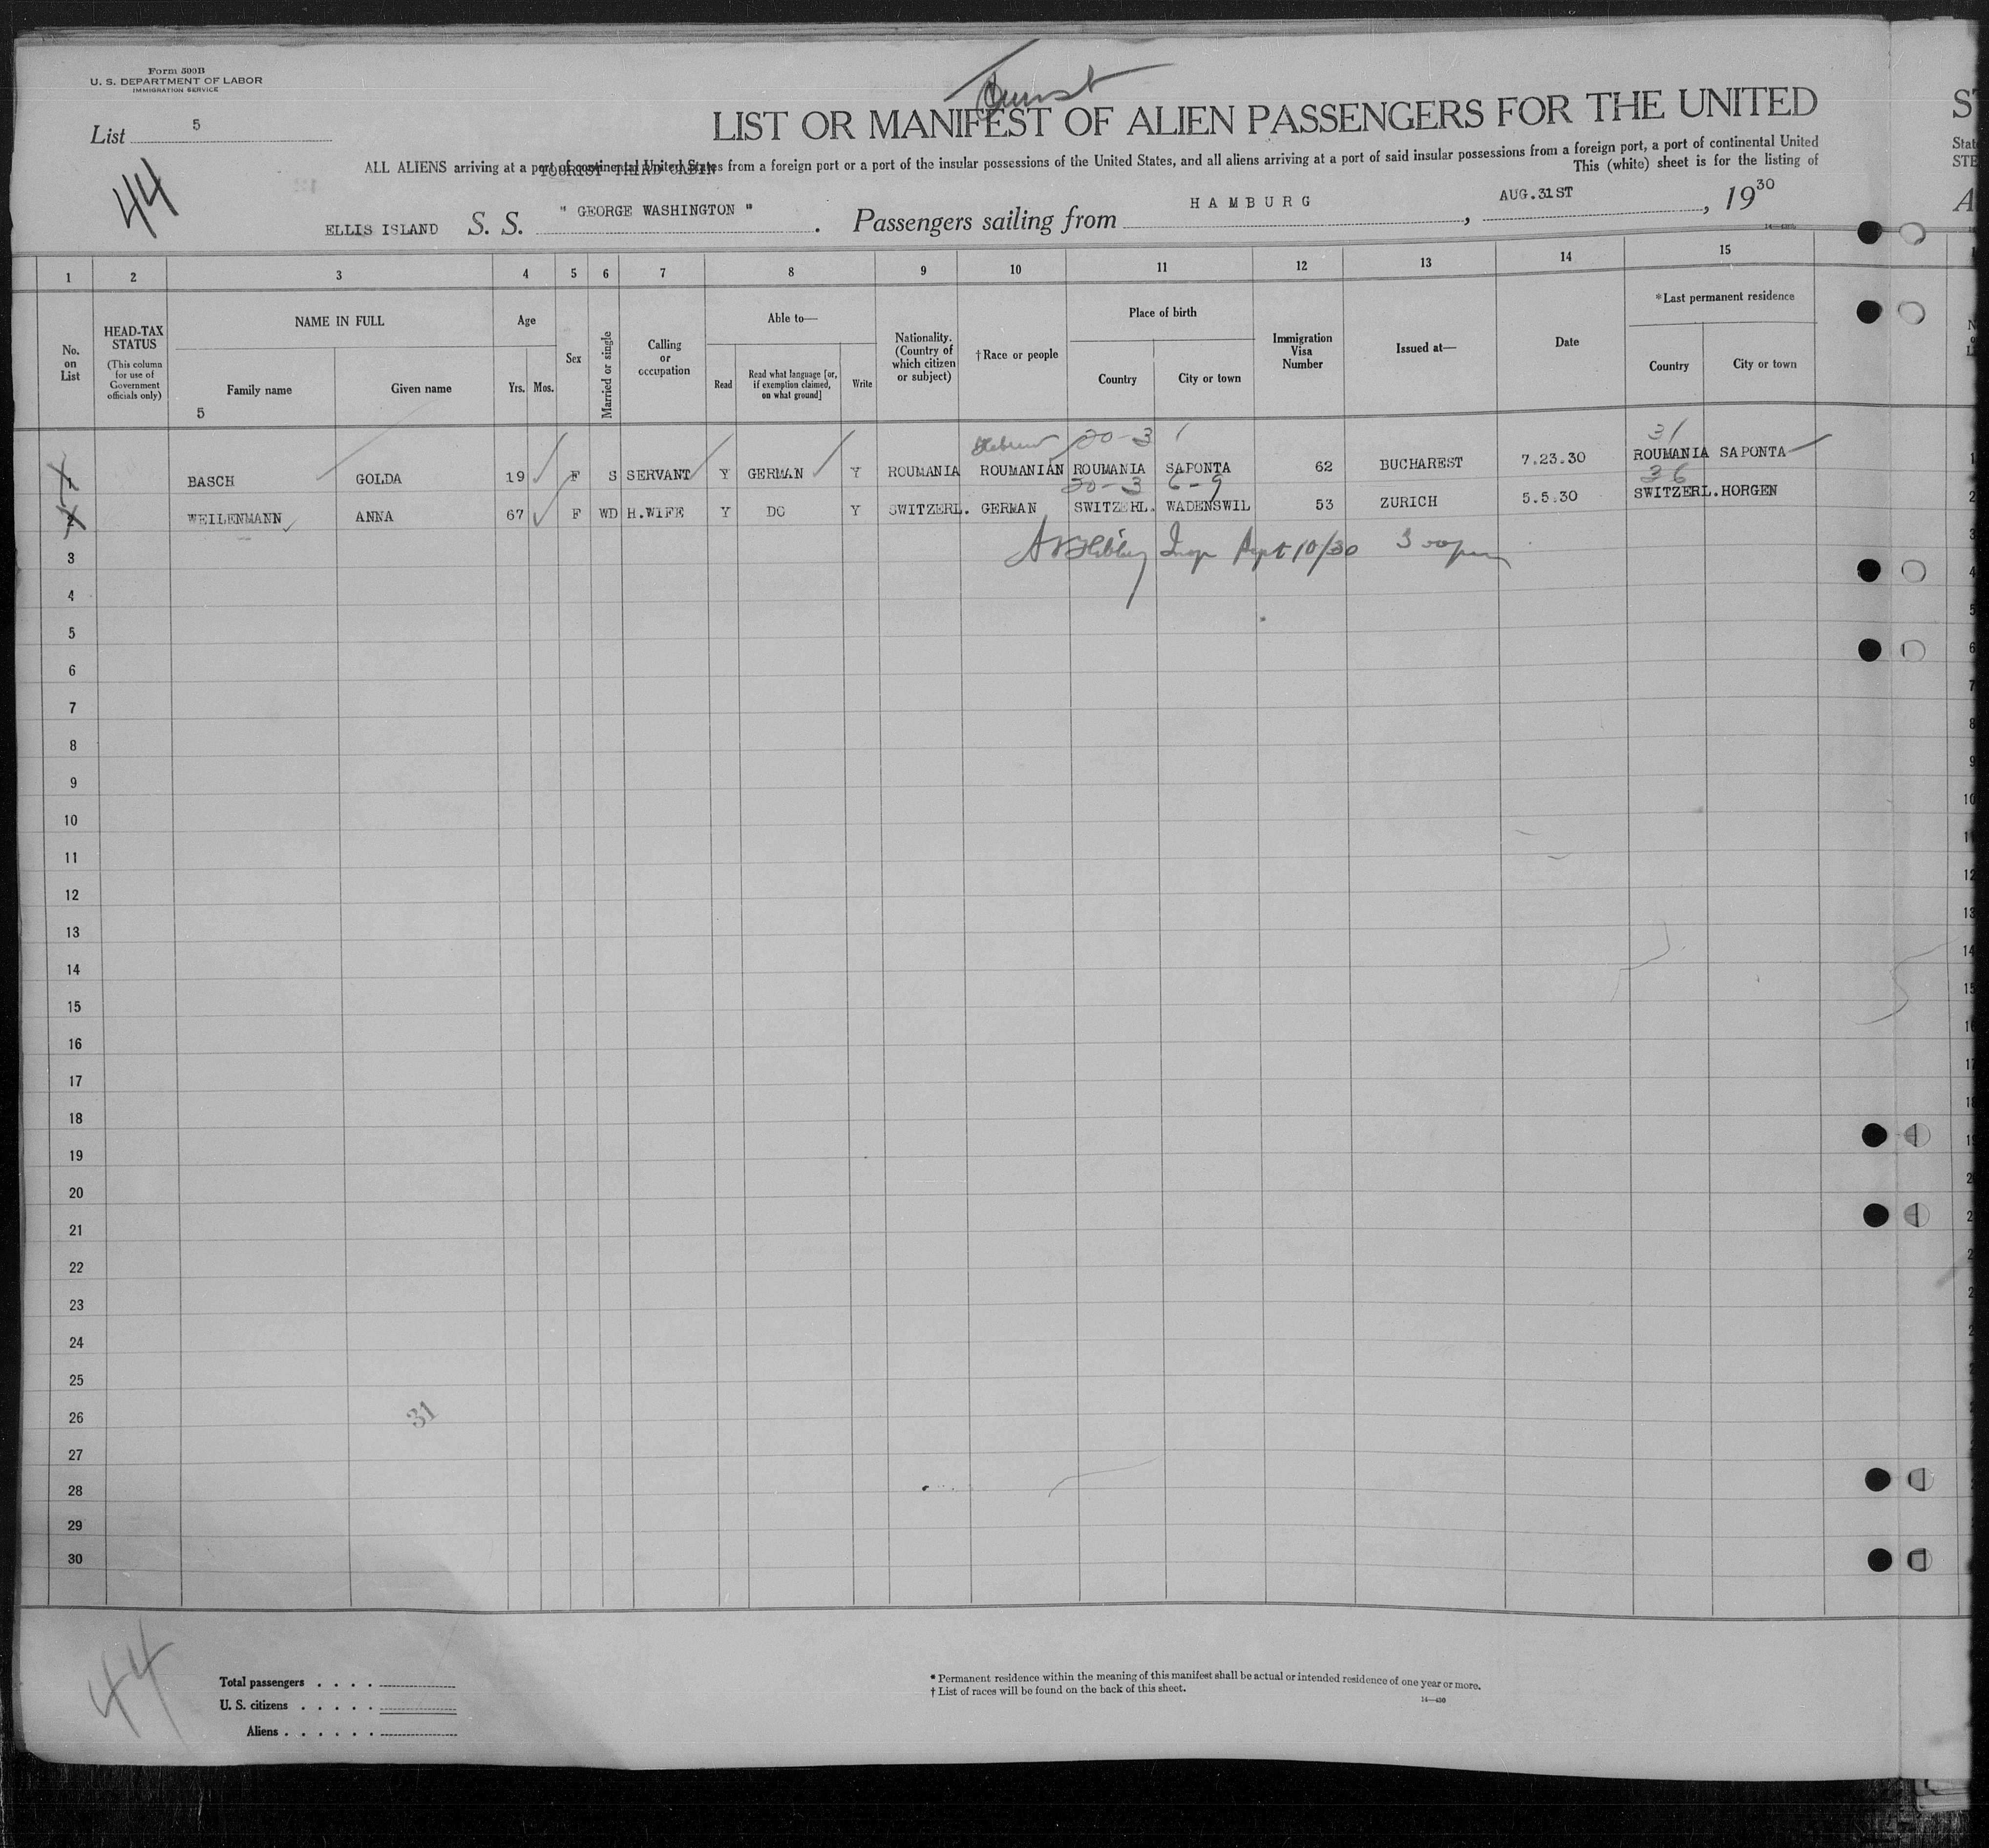 Form 500B
U. S. DEPARTMENT OF LABOR
IMMIGRATION SERVICE
List 5
44
Tourist
LIST OR MANIFEST OF ALIEN PASSENGERS FOR THE UNITED
ST
ALL ALIENS arriving at a port of continental United States from a foreign port or a port of the insular possessions of the United States, and all aliens arriving at a port of said insular possessions from a foreign port, a port of continental United
TOURIST THIRD CABIN
This (white) sheet is for the listing of
ELLIS ISLAND S. S. " GEORGE WASHINGTON " . Passengers sailing from HAMBURG , AUG.31ST , 1930
1 2 3 4 5 6 7 8 9 10 11 12 13 14 15
No. on List
HEAD-TAX STATUS
(This column for use of Government officials only)
NAME IN FULL
Family name
Given name
5
Age
Yrs. Mos.
Sex
Married or single
Calling or occupation
Able to—
Read
Read what language [or, if exemption claimed, on what ground]
Write
Nationality. (Country of which citizen or subject)
†Race or people
Place of birth
Country
City or town
Immigration Visa Number
Issued at—
Date
*Last permanent residence
Country
City or town
Hebrew 20-3 31
BASCH GOLDA 19 F S SERVANT Y GERMAN Y ROUMANIA ROUMANIAN ROUMANIA SAPONTA 62 BUCHAREST 7.23.30 ROUMANIA SAPONTA
20-3 6-9 36
2 WEILENMANN ANNA 67 F WD H.WIFE Y DO Y SWITZERL. GERMAN SWITZERL. WADENSWIL 53 ZURICH 5.5.30 SWITZERL. HORGEN
Insp Sept 10/30 3 00pm
3
4
5
6
7
8
9
10
11
12
13
14
15
16
17
18
19
20
21
22
23
24
25
26
31
27
28
29
30
44
Total passengers
U. S. citizens
Aliens
* Permanent residence within the meaning of this manifest shall be actual or intended residence of one year or more.
† List of races will be found on the back of this sheet.
14—430